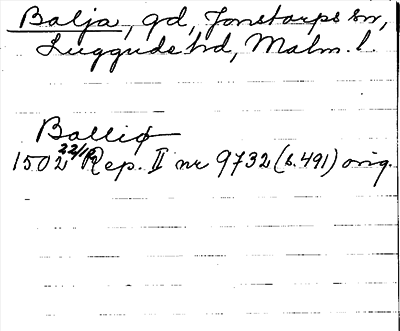 Balja, gd, Jonstorps sn,
Luggude hd, Malm. l.
Balliø
1502 22/10 Rep. II nr 9732 (s. 491) orig.